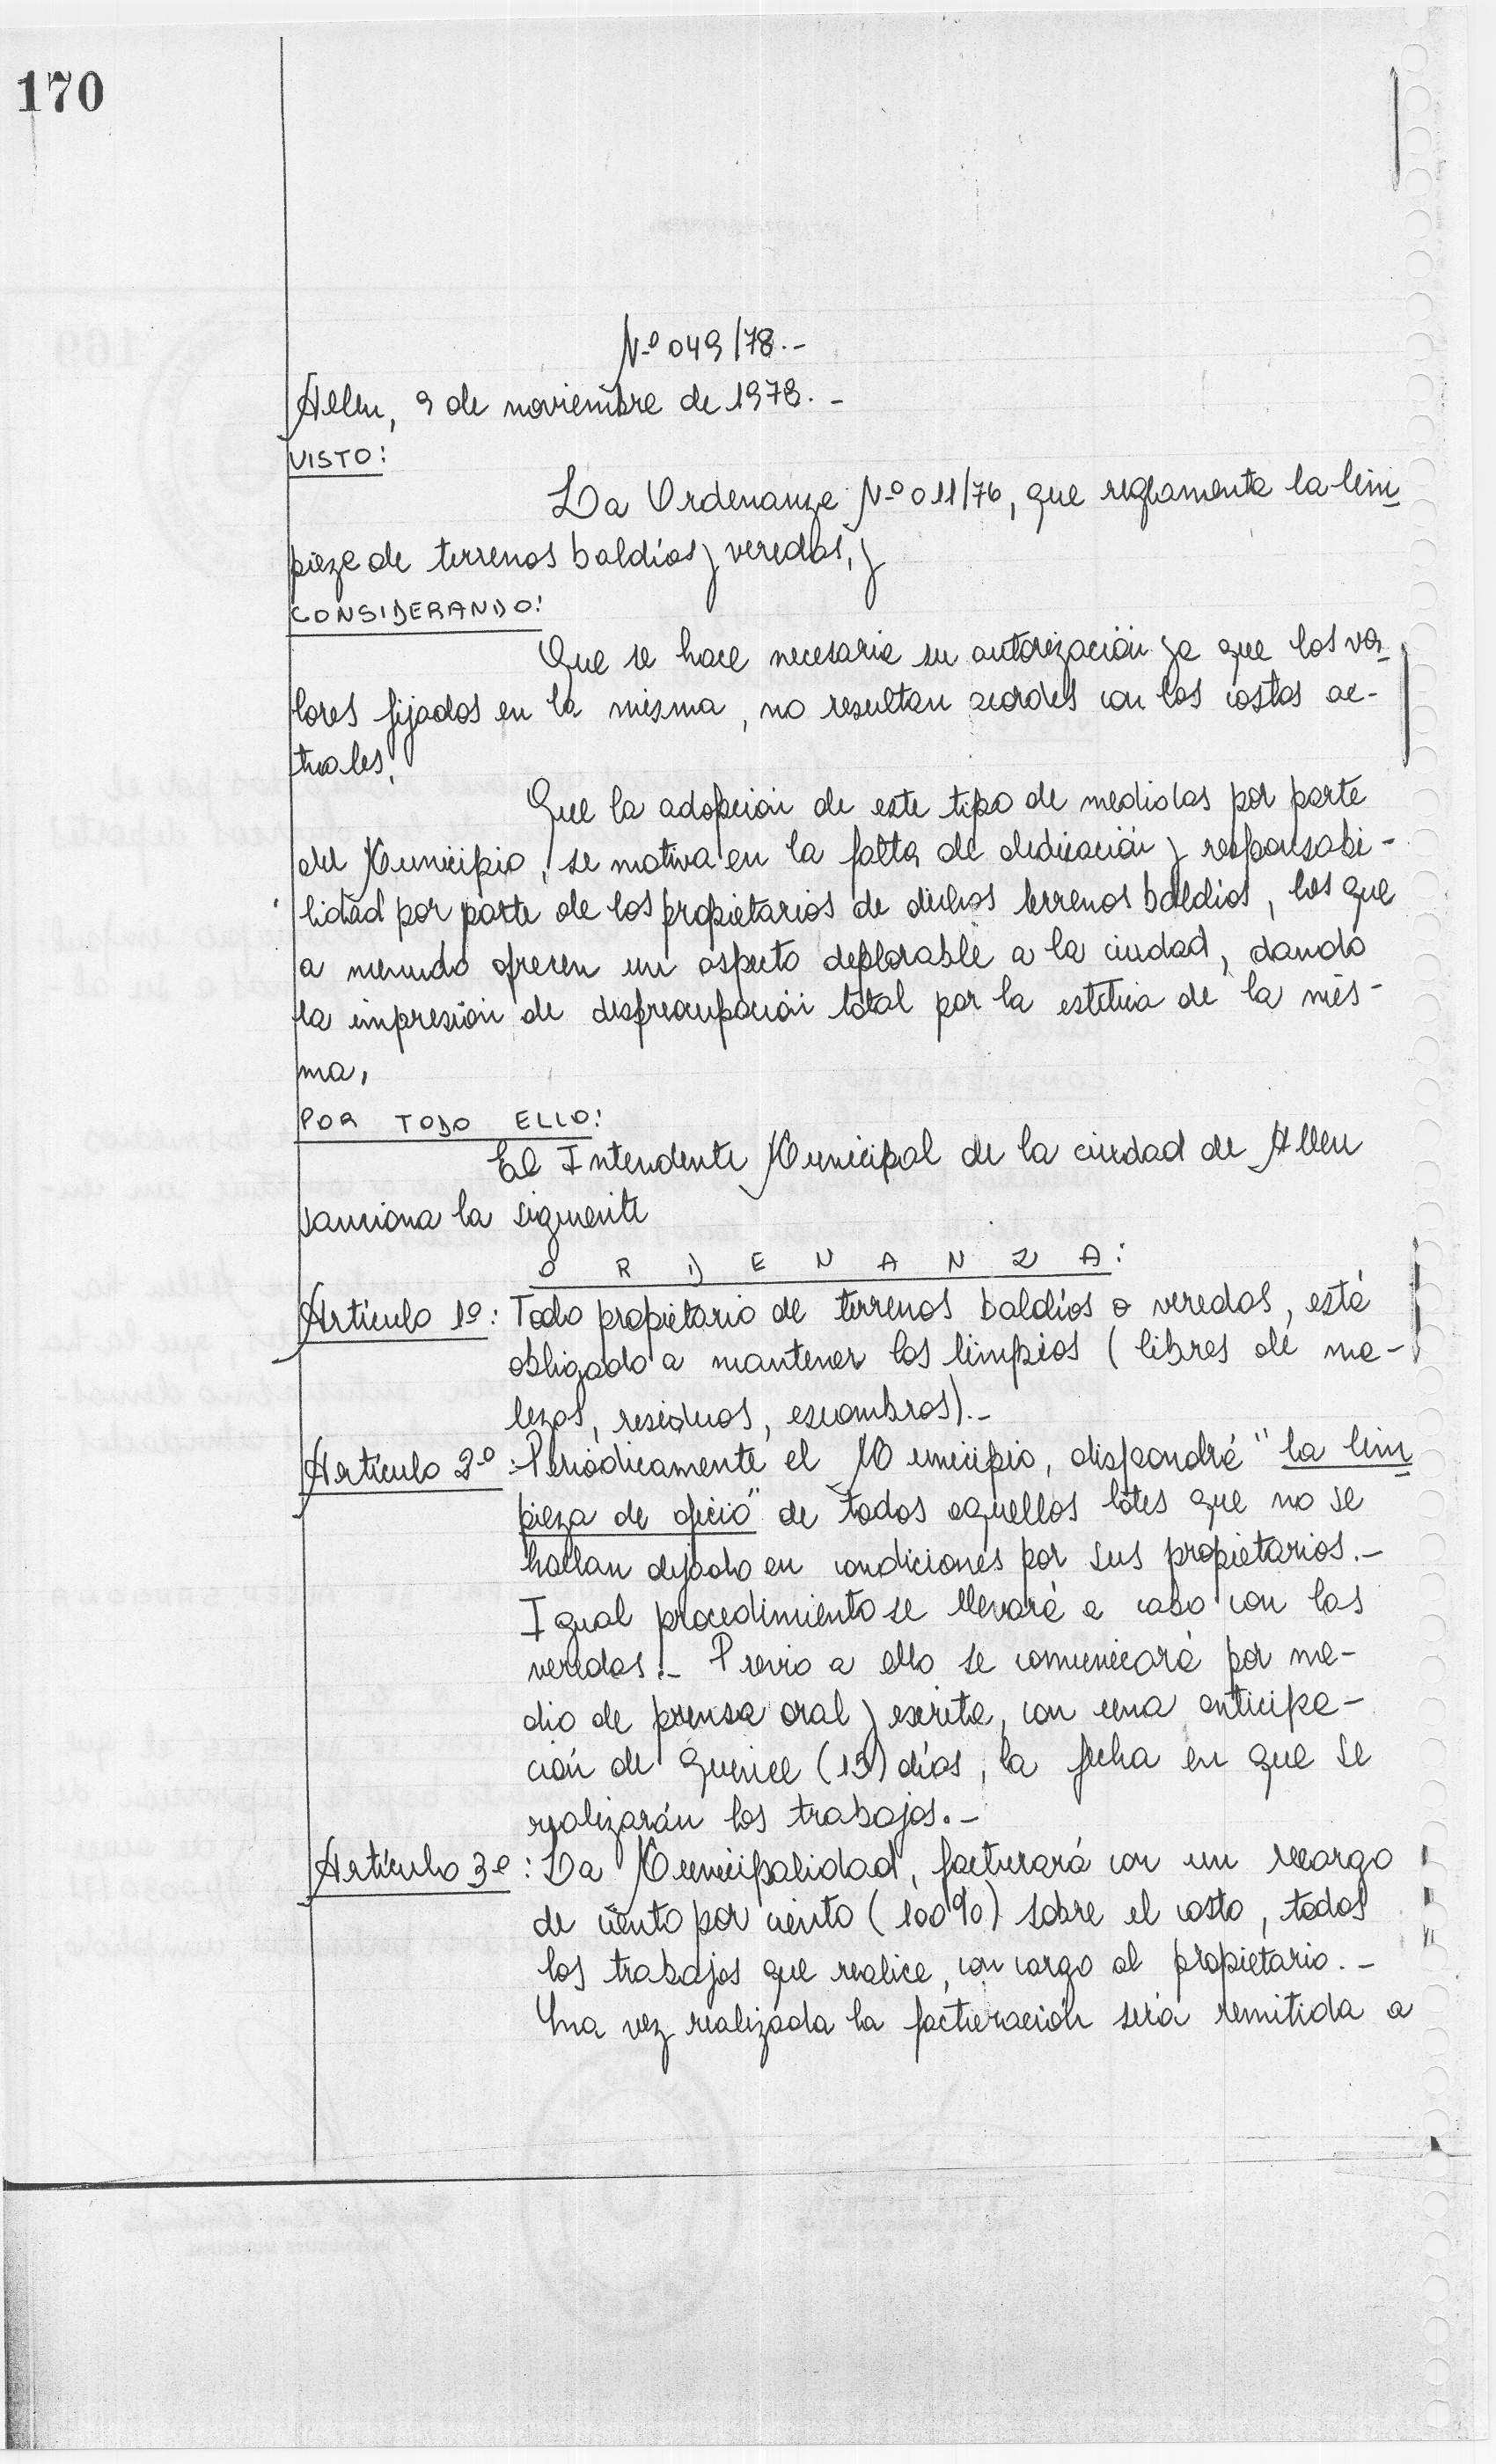 170
Nº 049/78.-
Allen, 9 de noviembre de 1978.-
VISTO:
La Ordenanza Nº 011/76, que reglamenta la lim
pieza de terrenos baldíos y veredas, y
CONSIDERANDO:
Que se hace necesaria su autorización ya que los va-
lores fijados en la misma, no resultan acordes con los costos ac-
tuales,
Que la adopción de este tipo de medidas por parte
del Municipio, se motiva en la falta de dedicación y responsabi-
lidad por parte de los propietarios de dichos terrenos baldíos, los que
a menudo ofrecen un aspecto deplorable a la ciudad, dando
la impresión de despreocupación total por la estética de la mis-
ma,
POR TODO ELLO:
El Intendente Municipal de la ciudad de Allen
sanciona la siguiente
O R D E N A N Z A:
Artículo 1º: Todo propietario de terrenos baldíos o veredas, está
obligado a mantener los limpios (libres de ma-
lezas, residuos, escombros).-
Artículo 2º: Periódicamente el Municipio, dispondrá "la lim
pieza de oficio" de todos aquellos lotes que no se
hallan dejado en condiciones por sus propietarios.-
Igual procedimiento se llevará a cabo con las
veredas.- Previo a ello se comunicará por me-
dio de prensa oral y escrita, con una anticipa-
ción de quince (15) días, la fecha en que se
realizarán los trabajos.-
Artículo 3º: La Municipalidad, facturará con un recargo
de ciento por ciento (100%) sobre el costo, todos
los trabajos que realice, con cargo al propietario.-
Una vez realizada la facturación será remitida a